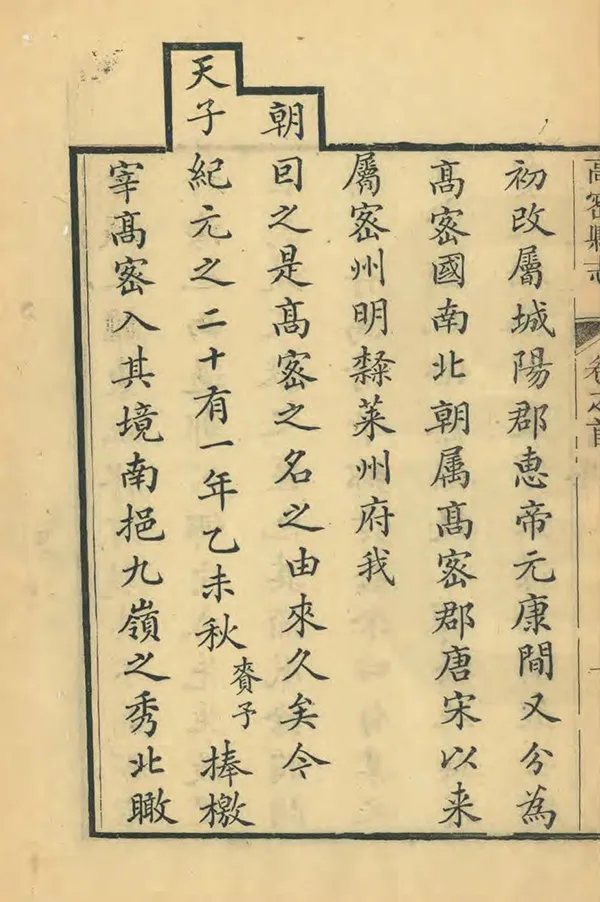 高密縣志 卷之首
初改屬城陽郡惠帝元康間又分為
高密國南北朝属高密郡唐宋以来
屬密州明隸萊州府我
朝因之是高密之名之由來久矣今
天子紀元之二十有一年乙未秋賚予捧檄
宰高密入其境南挹九嶺之秀北瞰